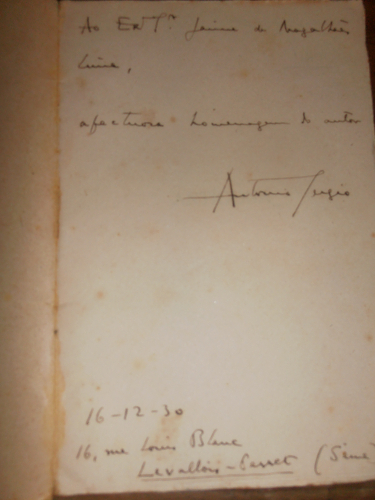 Ao Exmº. Jaime de Magalhães
Lima,
afectuosa homenagem do autor
Antonio Sergio
16-12-30
16, rue Louis Blanc
Levallois-Perret (Seine)